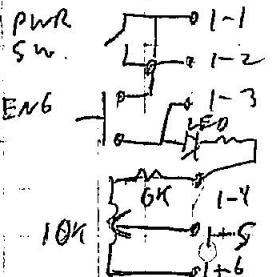 PWR 1-1
SW. 1-2
ENG 1-3
LED
6K 1-4
10K 1-5
1-6